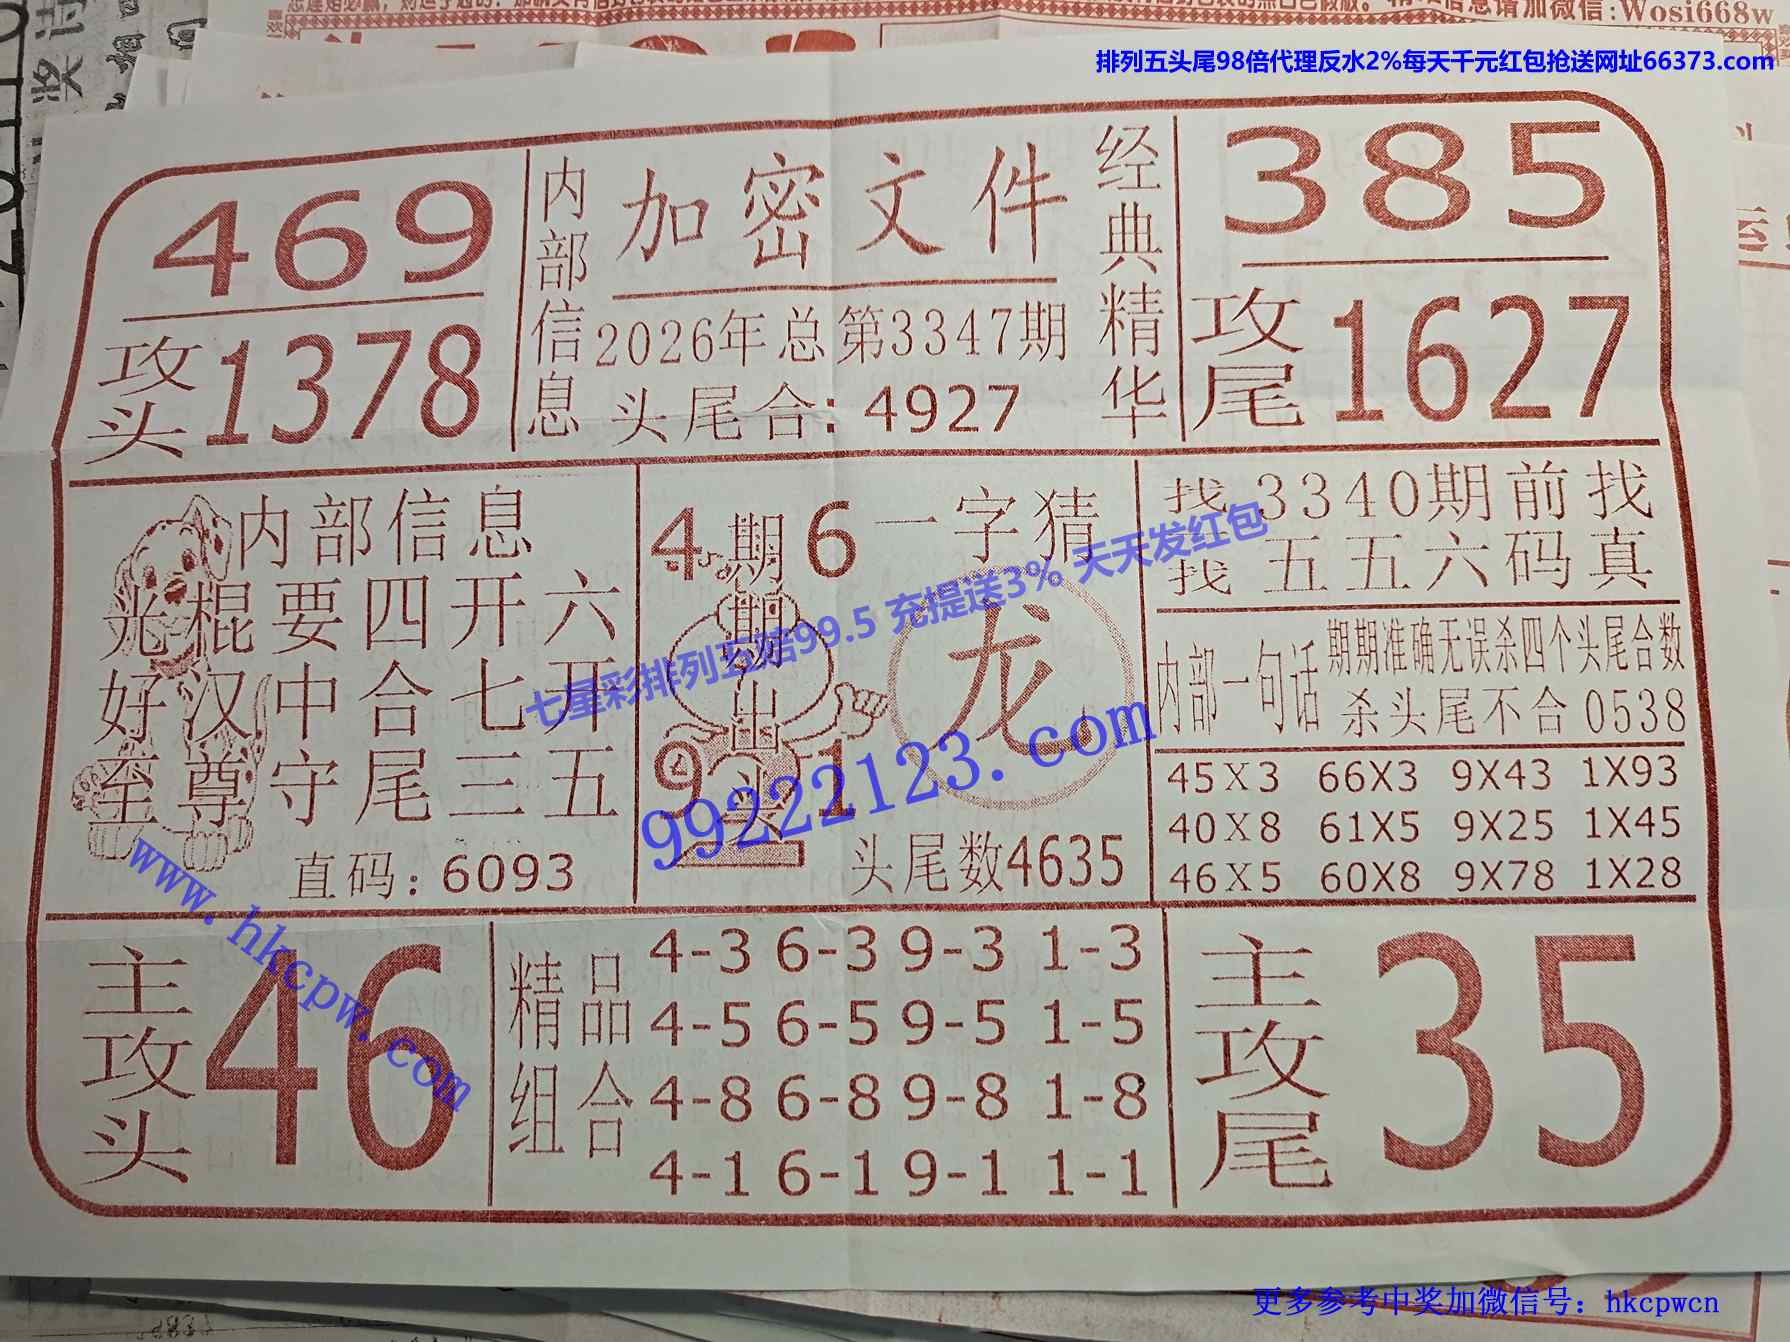 微信:Wosi668w
排列五头尾98倍代理反水2%每天千元红包抢送网址66373.com
469
攻头1378
内部信息
加密文件
2026年总第3347期
头尾合:4927
经典精华
385
攻尾1627
内部信息
光棍要四开六
好汉中合七开
至尊守尾三五
直码:6093
4期6
期
出
9头1
一字猜
龙
头尾数4635
找3340期前找
找五五六码真
内部一句话
期期准确无误杀四个头尾合数
杀头尾不合0538
45X3 66X3 9X43 1X93
40X8 61X5 9X25 1X45
46X5 60X8 9X78 1X28
七星彩排列五赔99.5 充提送3% 天天发红包
99222123.com
www.hkcpw.com
主攻头46
精品组合
4-3 6-3 9-3 1-3
4-5 6-5 9-5 1-5
4-8 6-8 9-8 1-8
4-1 6-1 9-1 1-1
主攻尾35
更多参考中奖加微信号：hkcpwcn